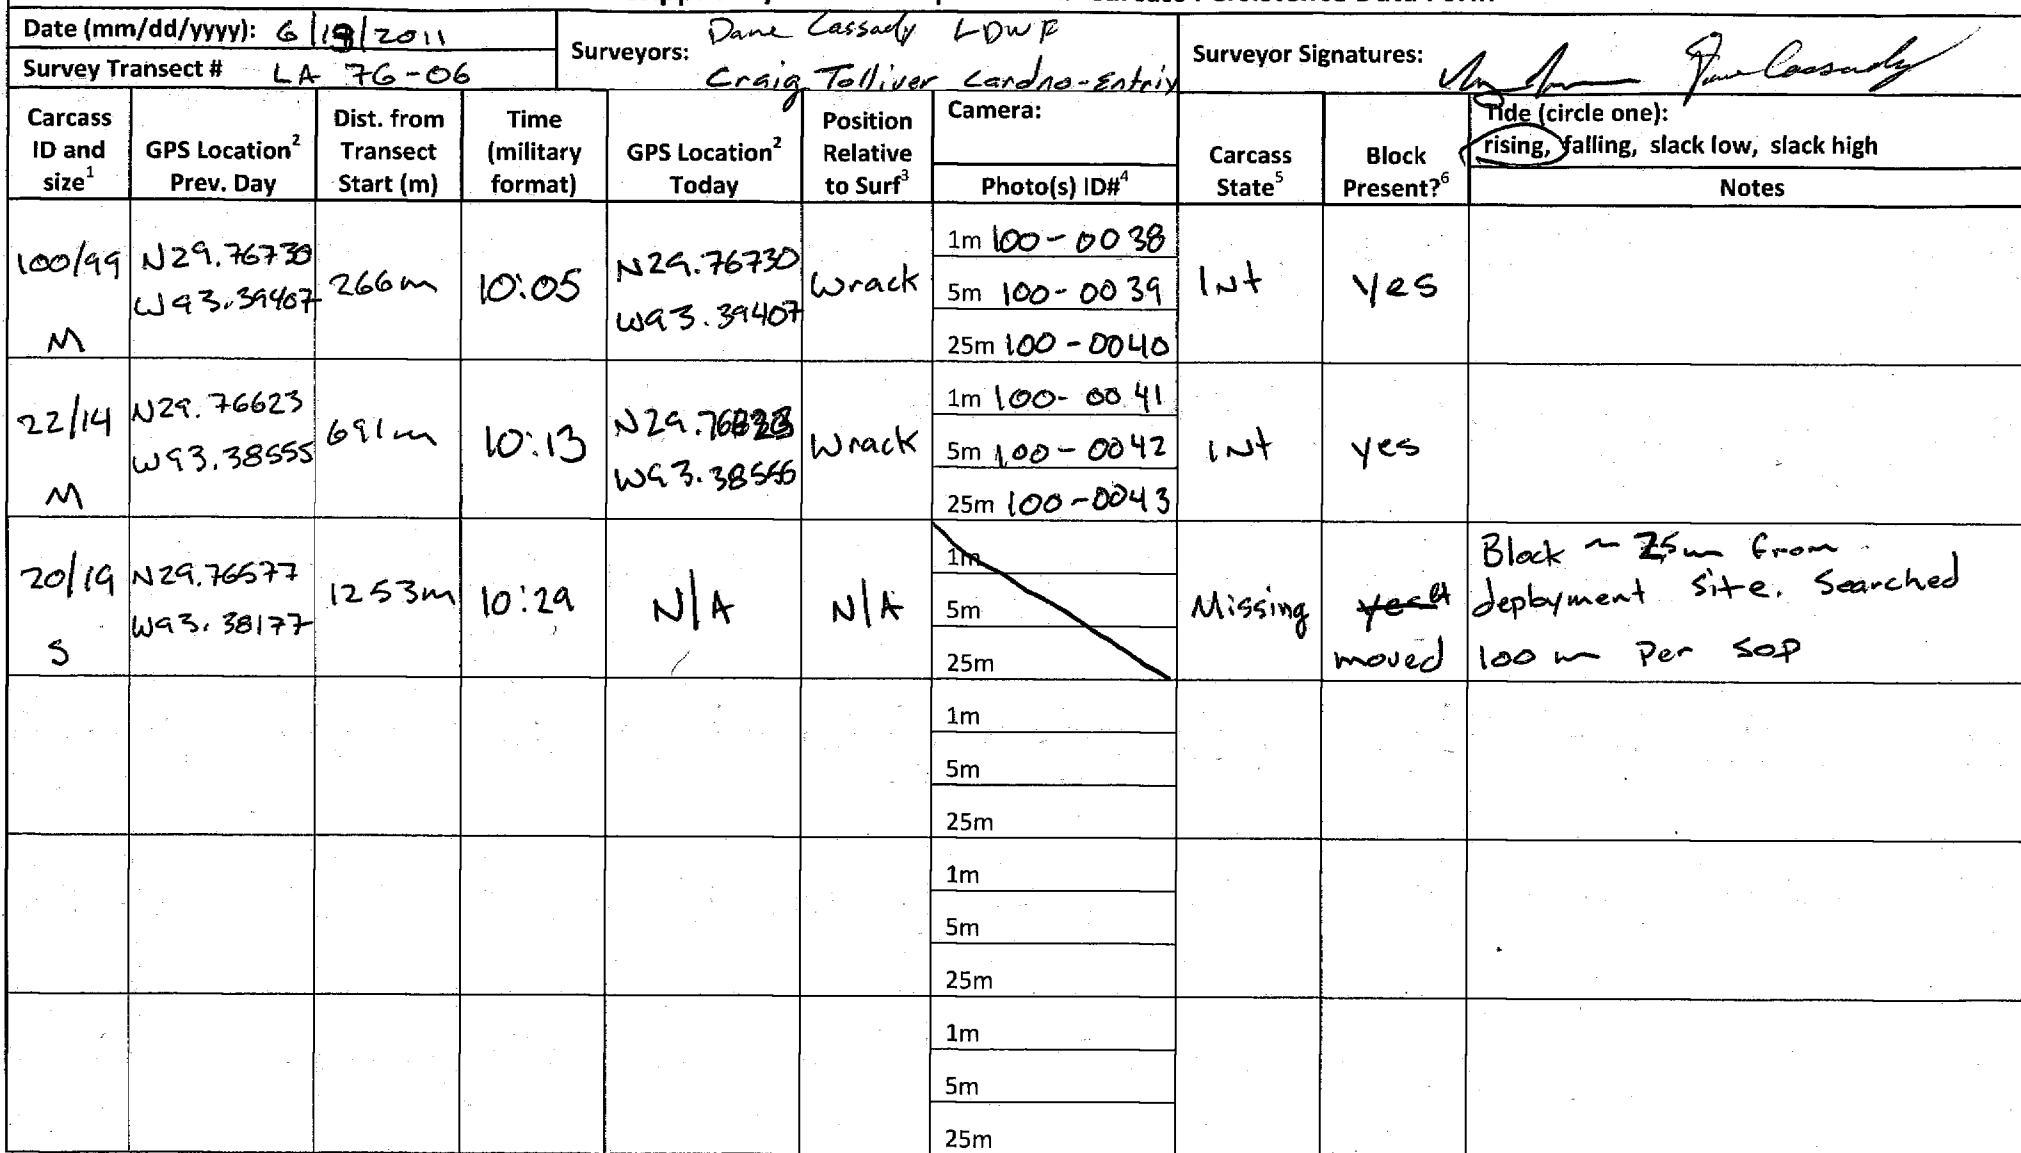 Date (mm/dd/yyyy): 6/19/2011
Survey Transect # LA 76-06
Surveyors: Dane Cassady LDWF
Craig Tolliver Cardno-Entrix
Surveyor Signatures:
Carcass ID and size1
GPS Location2 Prev. Day
Dist. from Transect Start (m)
Time (military format)
GPS Location2 Today
Position Relative to Surf3
Camera:
Photo(s) ID#4
Carcass State5
Block Present?6
Tide (circle one):
rising, falling, slack low, slack high
Notes
100/99 M
N29.76730
W93.39407
266m
10:05
N29.76730
W93.39407
Wrack
1m 100-0038
5m 100-0039
25m 100-0040
Int
yes
22/14 M
N29.76623
W93.38555
691m
10:13
W93.38556
Wrack
1m 100-0041
5m 100-0042
25m 100-0043
Int
yes
20/19 S
N29.76577
W93.38177
1253m
10:29
N/A
N/A
1m
5m
25m
Missing
yes
moved
Block ~ 25m from
deployment site. Searched
100 m per SOP
1m
5m
25m
1m
5m
25m
1m
5m
25m